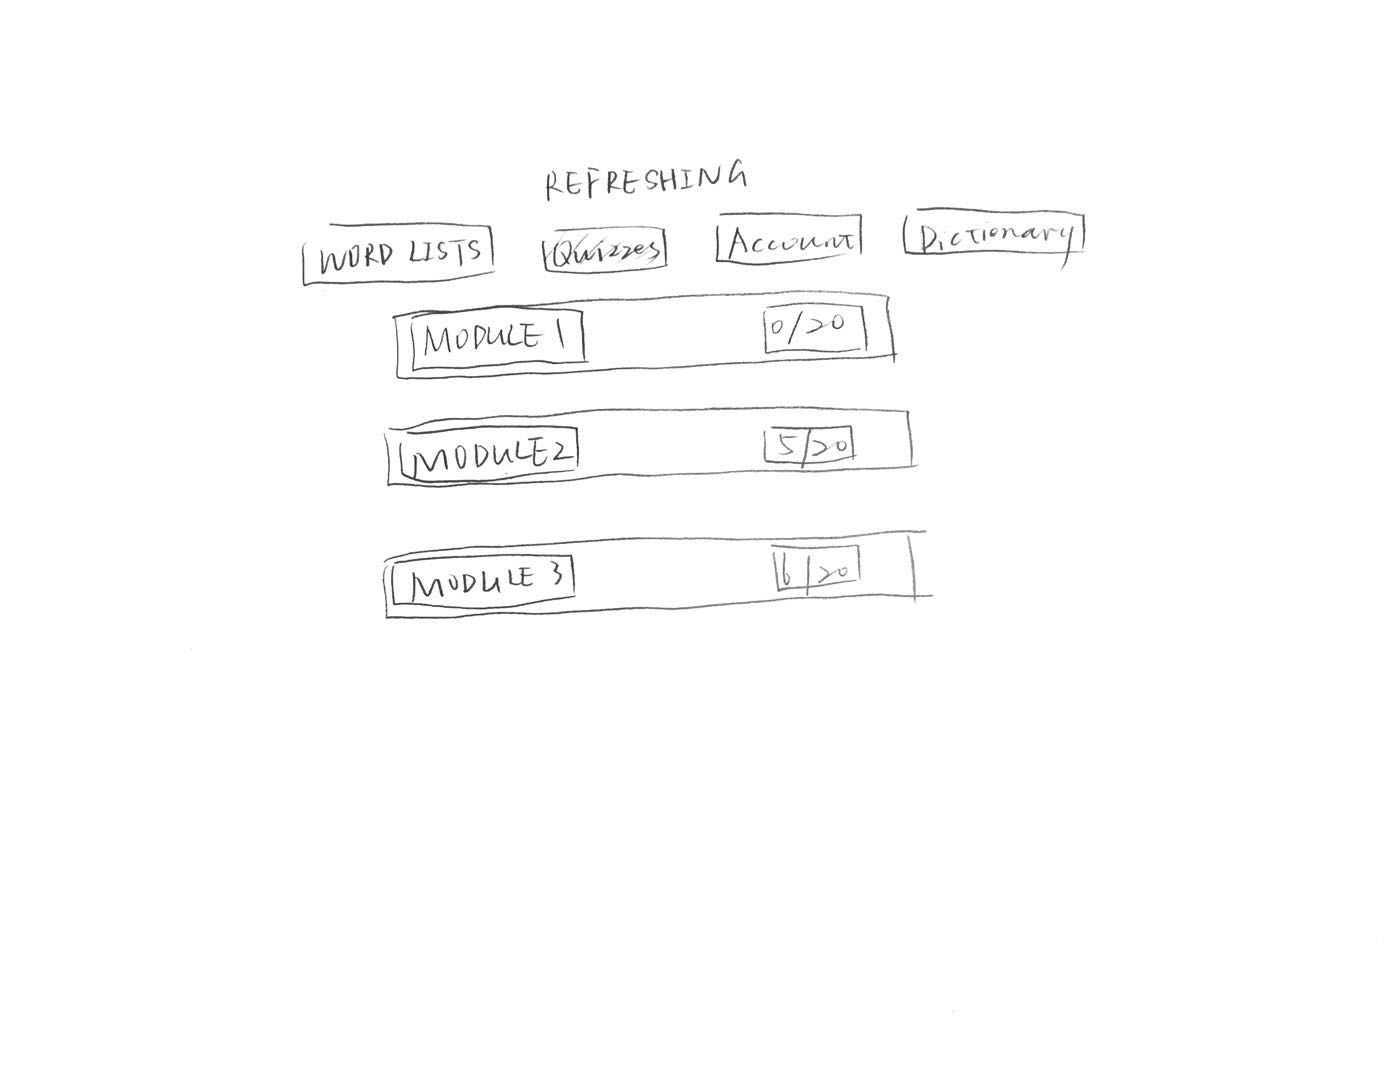 REFRESHING
WORD LISTS Quizzes Account Dictionary
MODULE 1 0/20
MODULE 2 5/20
MODULE 3 6/20